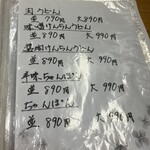 玉うどん
並 790円 大 890円
味噌けんちんうどん
並 890円 大 990円
並 890円 大 990円
辛味ちゃんぽん
並 890円 大 990円
ちゃんぽん
並 890円 大 990円